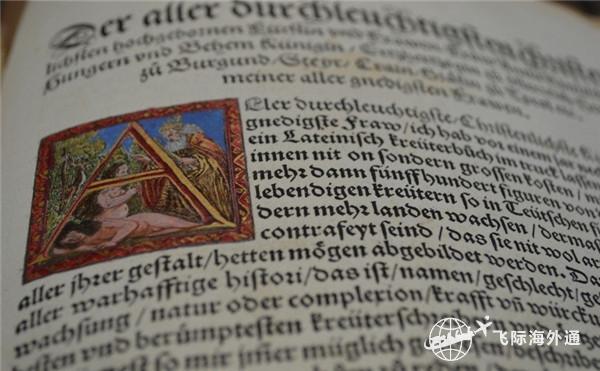 Der aller durchleuchtigsten
lichsten hochgebornen Fürstin vnd Frawen
Hungern vnd Behem Künigin
zů Burgund/Steyr/Crain
meiner aller gnedigsten Frawen.
A
Ller durchleuchtigste/Christenlichste
gnedigste Fraw/ich hab vor einem jar
ein Lateinisch kreüterbůch im truck lassen
innen nit on sondern grossen kosten/
mehr dann fünffhundert figuren von
lebendigen kreütern so in Teütschen
dern mehr landen wachsen/dermass
contrafeyt seind/das sie nit wol
aller jhrer gestalt/hetten mögen abgebildet werden. Das
aller warhafftige histori/das ist/namen/geschlecht/
wachsung/natur oder complexion/krafft vñ würckung
vnd berümptesten kreüterschreiber
müglich gewesen/beschriben
飞际海外通